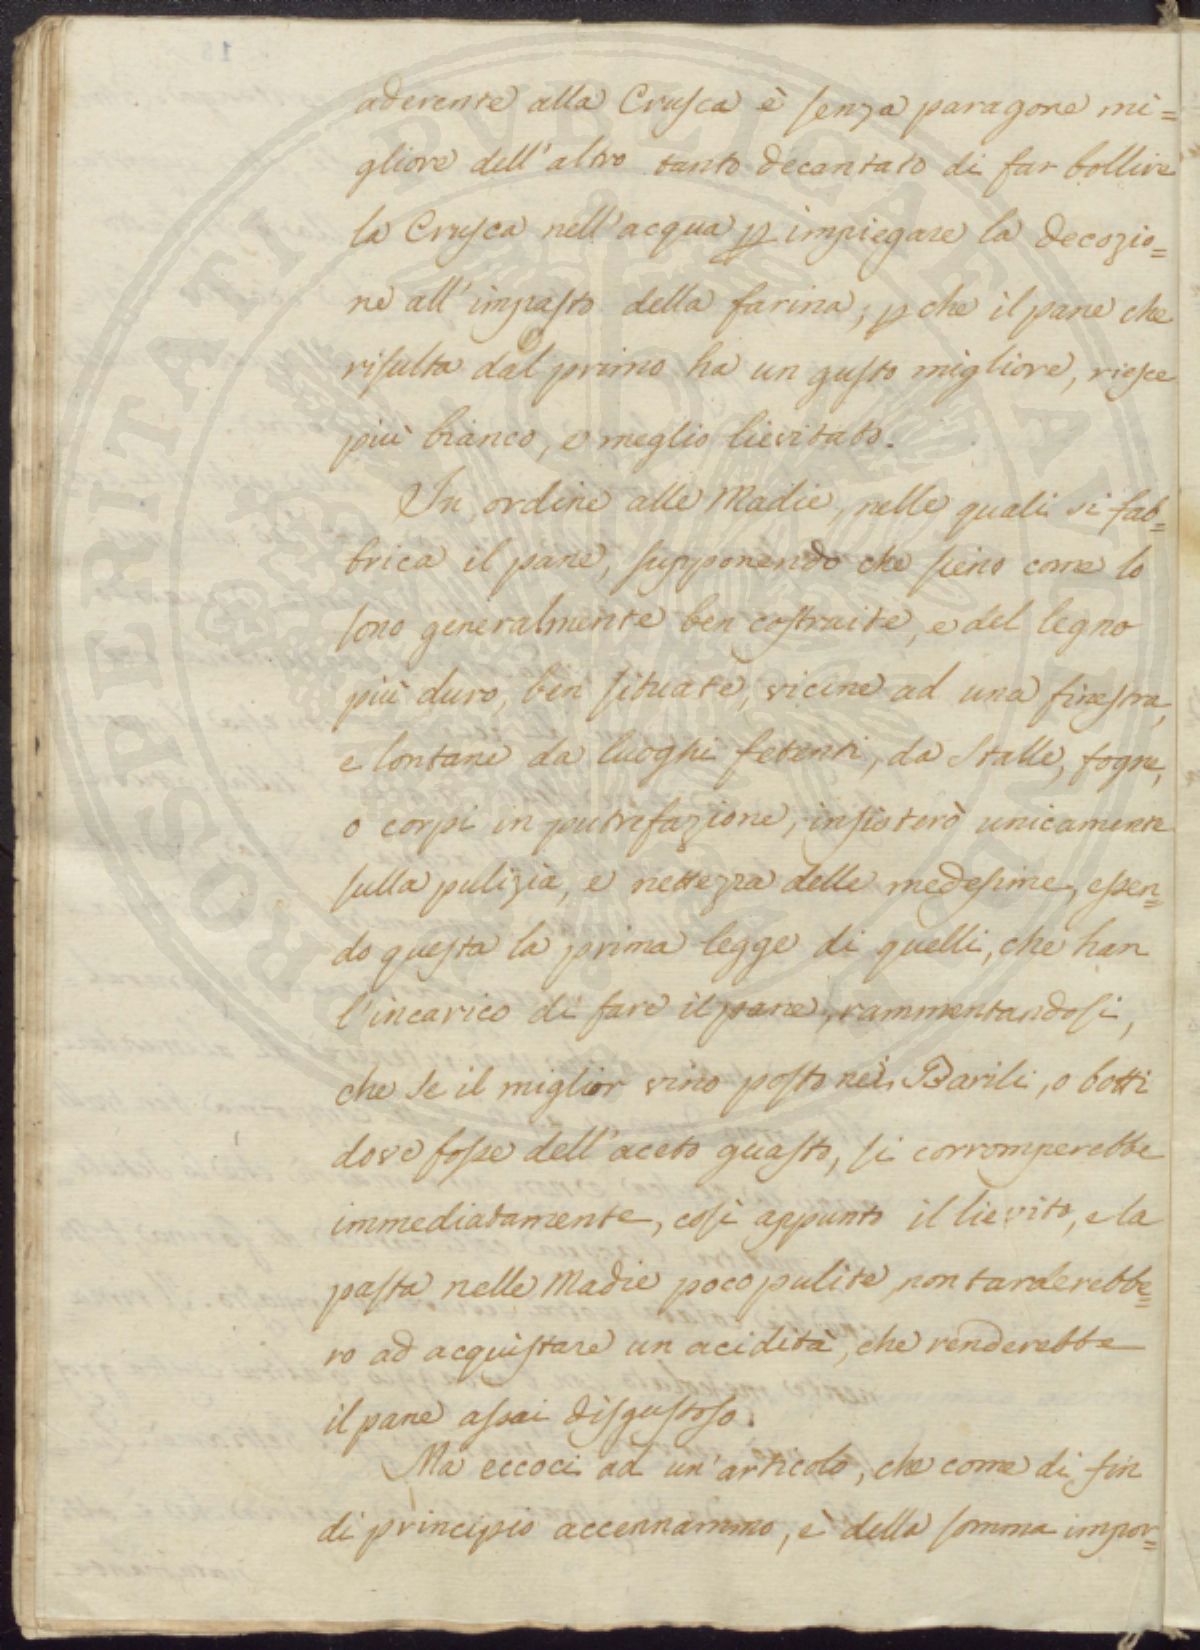 aderente alla Crusca è senza paragone mi=
gliore dell'altro tanto decantato di far bollire
la Crusca nell'acqua p impiegare la decozio=
ne all'impasto della farina, p che il pane che
risulta dal primo ha un gusto migliore, riesce
più bianco, e meglio lievitato.
In ordine alle Madie, nelle quali si fab=
brica il pane, supponendo che sieno come lo
sono generalmente ben costruite, e del legno
più duro, ben situate, vicine ad una finestra,
e lontane da luoghi fetenti, da Stalle, fogne,
o corpi in putrefazione, insisterò unicamente
sulla pulizia, e nettezza delle medesime, essen=
do questa la prima legge di quelli, che han
l'incarico di fare il pane, rammentandosi,
che se il miglior vino posto nei Barili, o botti
dove fosse dell'aceto guasto, si corromperebbe
immediatamente, così appunto il lievito, e la
pasta nelle Madie poco pulite, non tarderebbe=
ro ad acquistare un acidità, che renderebbe
il pane assai disgustoso.
Ma eccoci ad un'articolo, che come di fin
di principio accennammo, è della somma impor=
PROSPERITATI PVBLICAE AVGENDAE